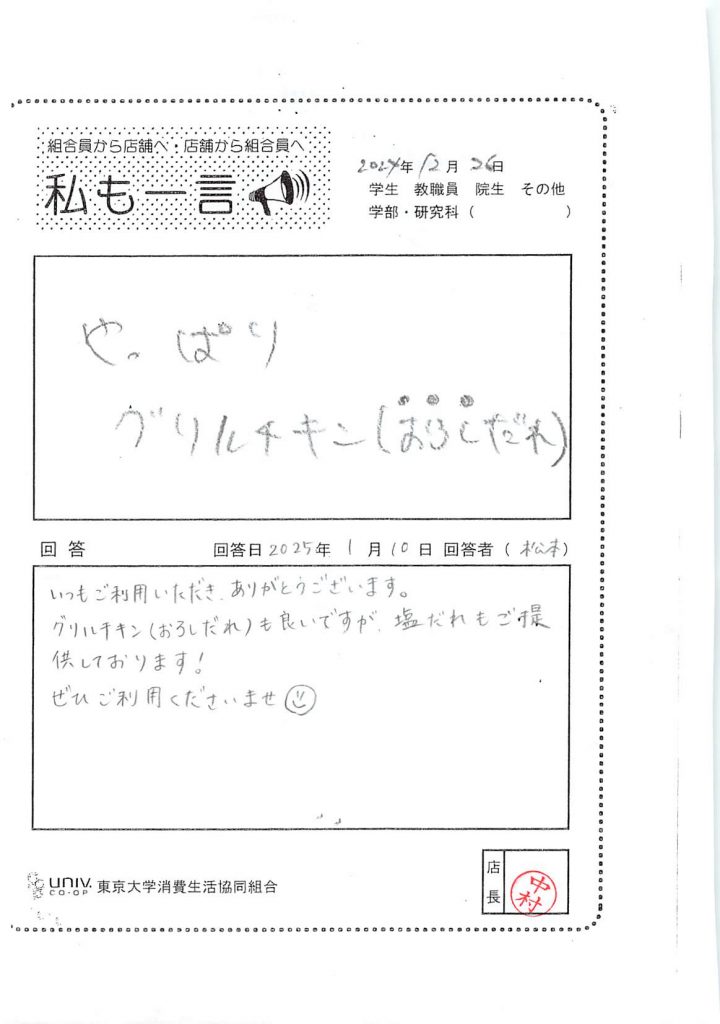 組合員から店舗へ・店舗から組合員へ
私も一言
2024年 12月 26日
学生 教職員 院生 その他
学部・研究科 ( )
やっぱり
グリルチキン(おろしだれ)
回答 回答日 2025年 1月10日 回答者 ( 松本)
いつもご利用いただき、ありがとうございます。
グリルチキン(おろしだれ)も良いですが、塩だれもご提
供しております!
ぜひご利用くださいませ
UNIV. CO-OP 東京大学消費生活協同組合
店長
中村